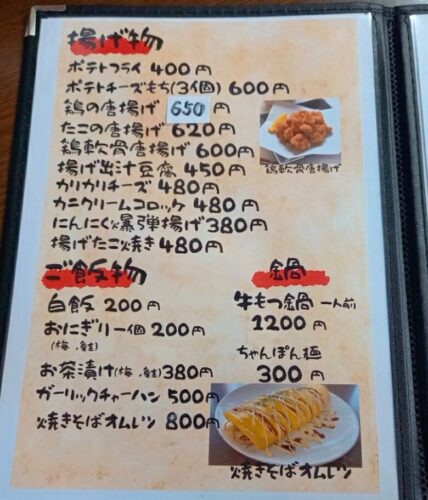 揚げ物
ポテトフライ 400円
ポテトチーズもち(3個) 600円
鶏の唐揚げ 650円
たこの唐揚げ 620円
鶏軟骨唐揚げ 600円
揚げ出汁豆腐 450円
カリカリチーズ 480円
カニクリームコロッケ 480円
にんにく爆弾揚げ 380円
揚げたこ焼き 480円
鶏軟骨唐揚げ
ご飯物
白飯 200円
おにぎり一個 200円
(梅、鮭)
お茶漬け(梅、鮭) 380円
ガーリックチャーハン 500円
焼きそばオムレツ 800円
鍋
牛もつ鍋 一人前
1200円
ちゃんぽん麺
300円
焼きそばオムレツ